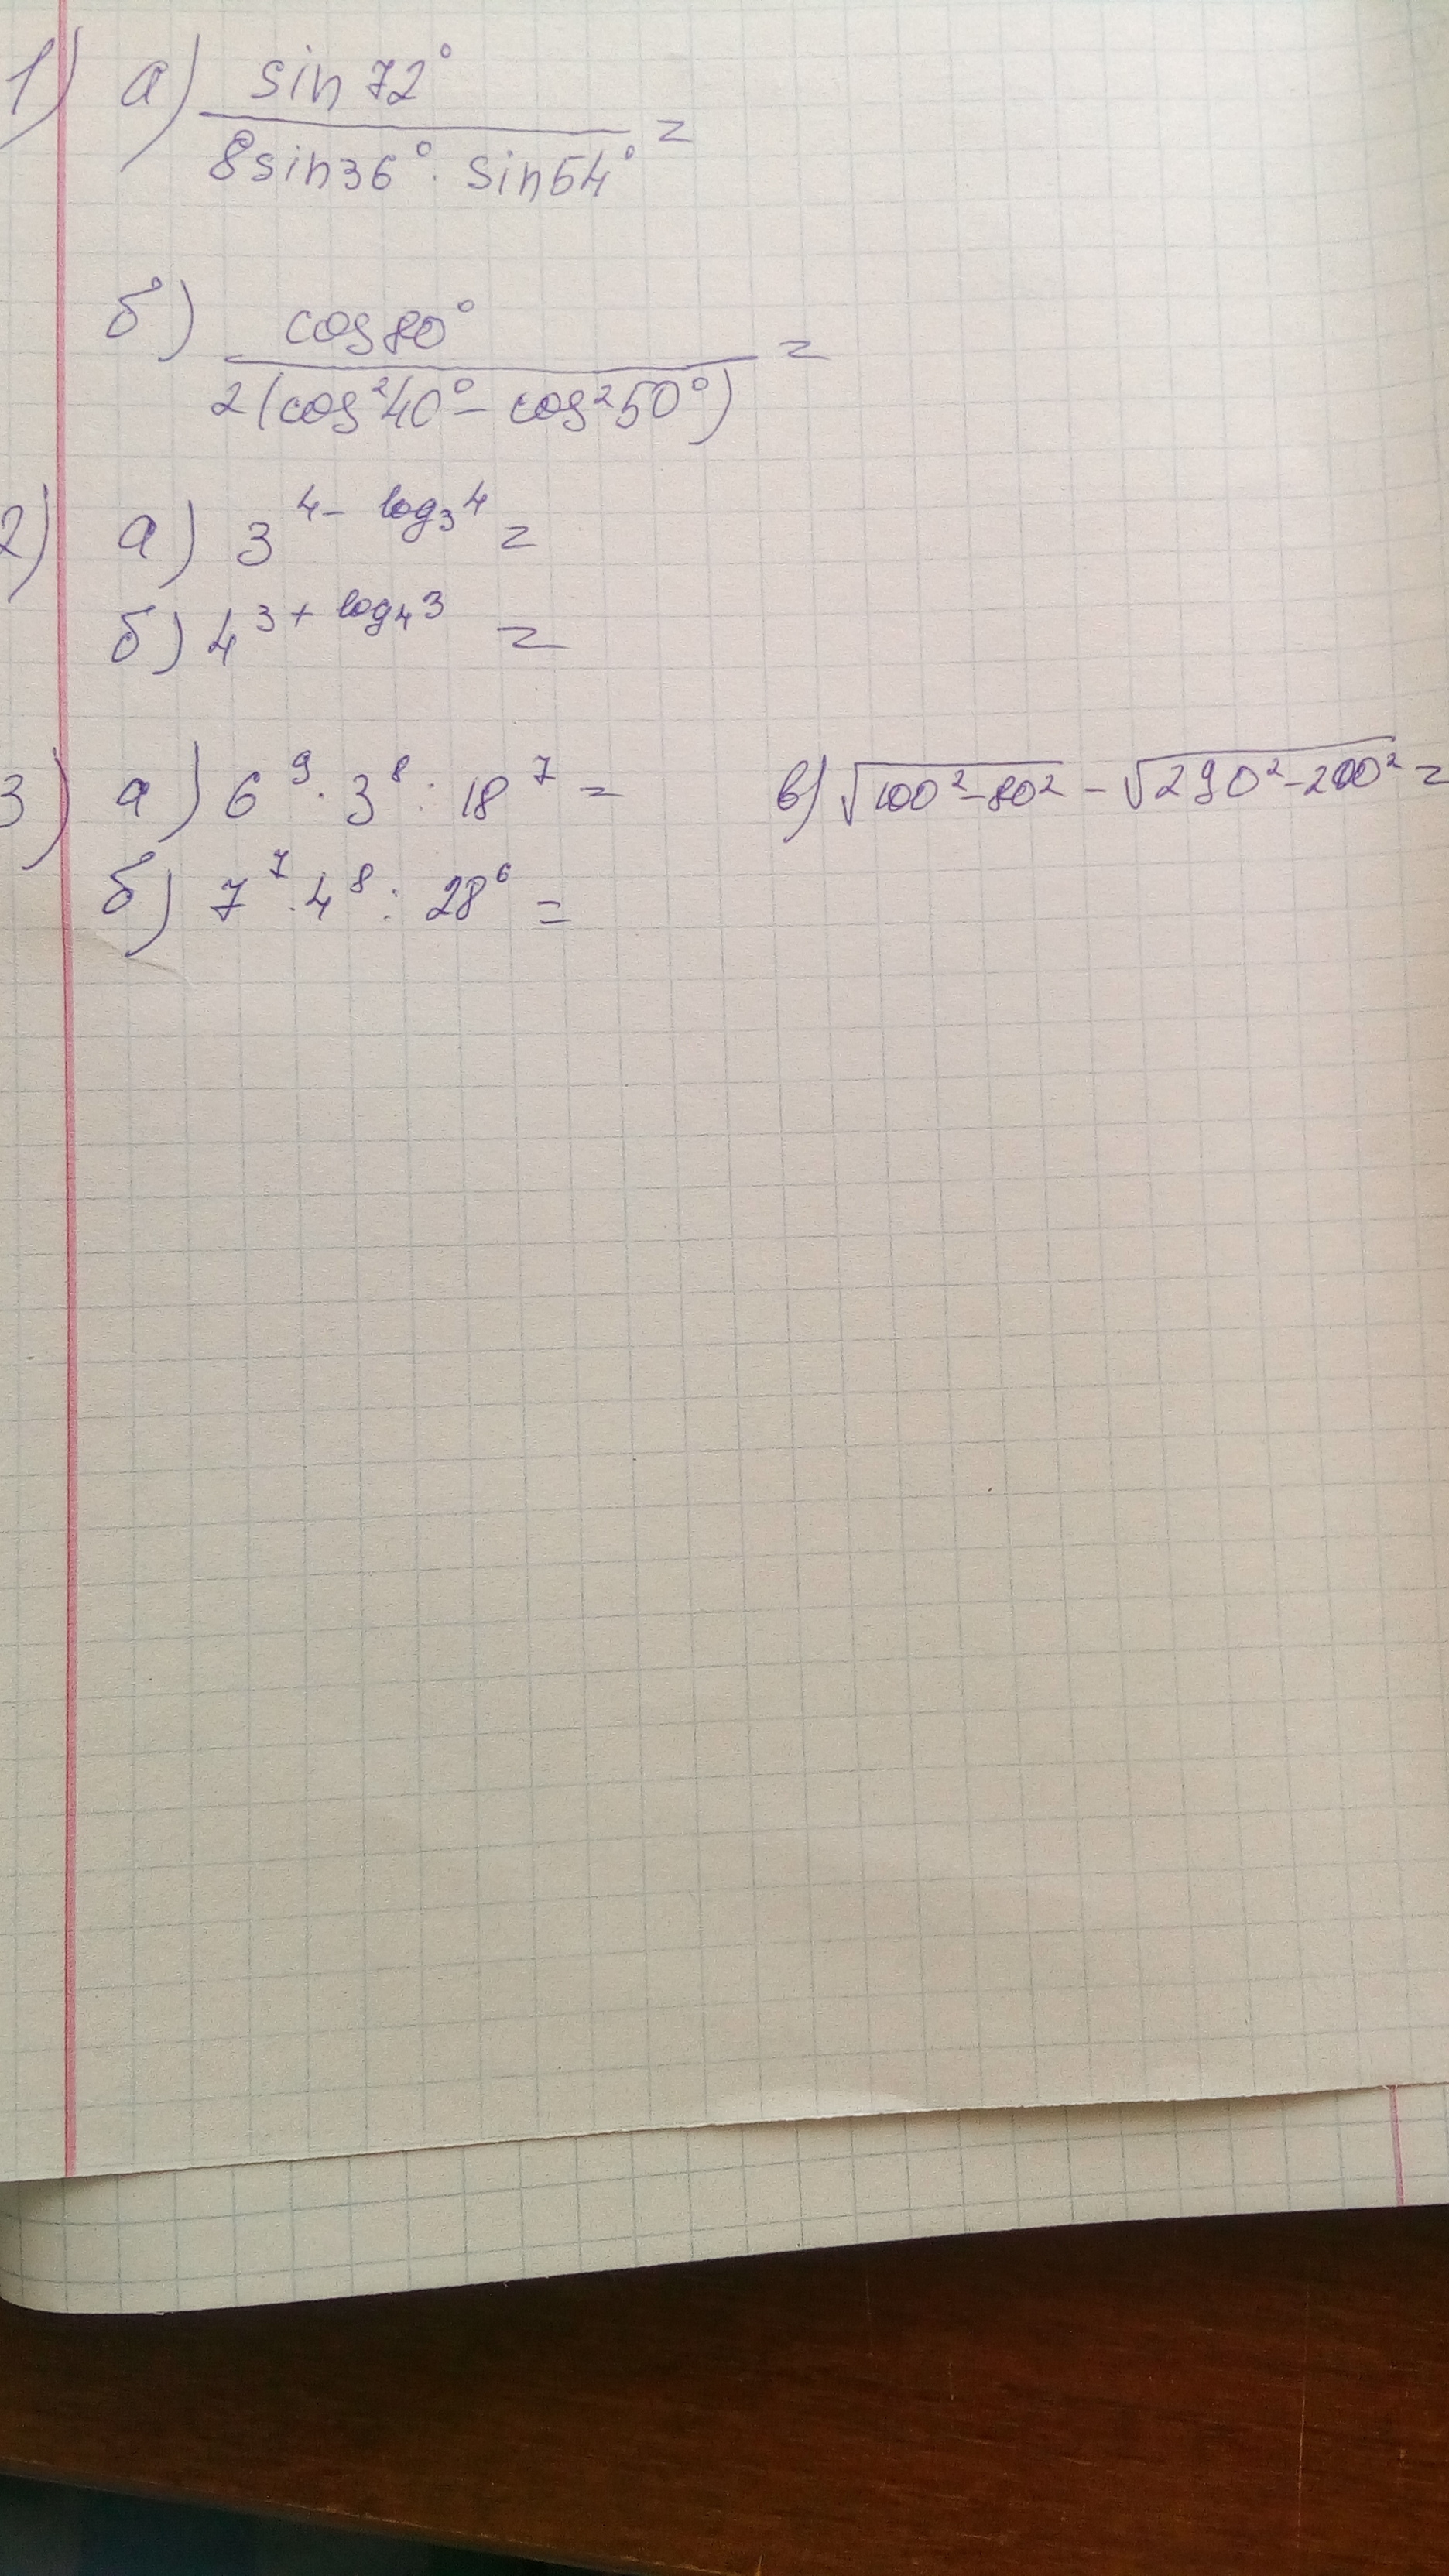 1) а) sin 72° / 8 sin 36° · sin 54° =
б) cos 80° / 2(cos²40° - cos²50°) =
2) а) 3^(4 - log₃4) =
б) 4^(3 + log₄3) =
3) а) 6⁹ · 3⁸ : 18⁷ = в) √(100² - 80²) - √(290² - 200²) =
б) 7⁷ · 4⁸ : 28⁶ =